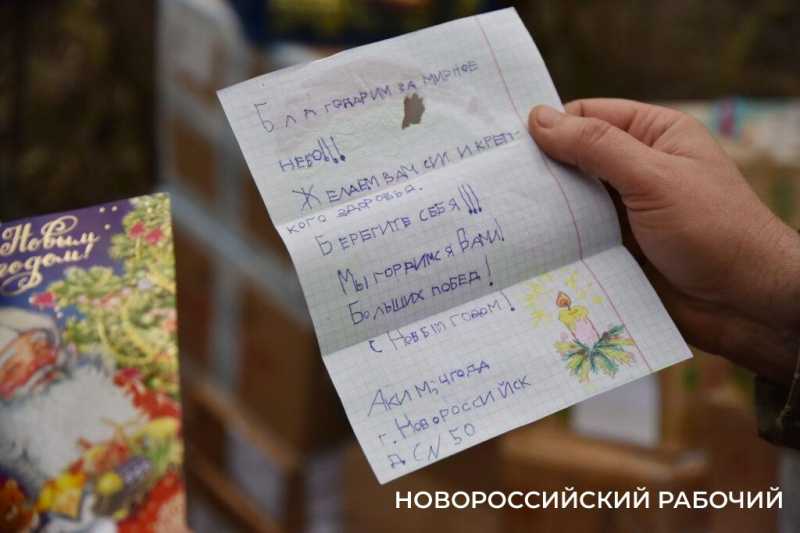 Благодарим за мирное
небо!!!
Желаем вам сил и креп-
кого здоровья.
Берегите себя!!!
Мы гордимся Вами!
Больших побед!
с Новым годом!
Аким, 4 года
г. Новороссийск
Новым
годом!
НОВОРОССИЙСКИЙ РАБОЧИЙ